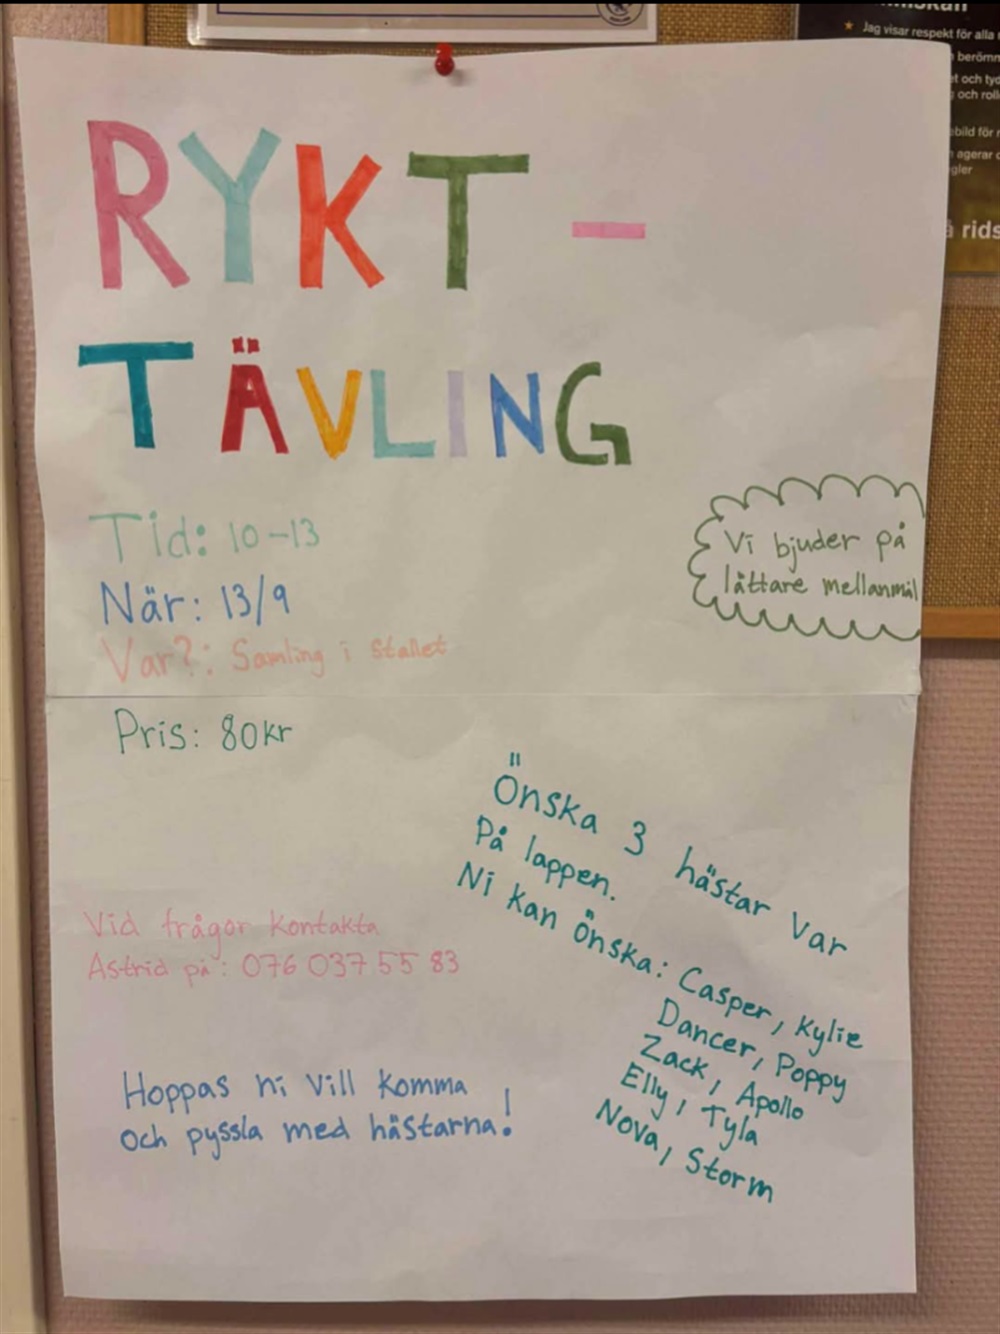 Jag visar respekt för alla
berömn
et och tyd
och roll
bild för
agerar
gler
rids
RYKT-
TÄVLING
Tid: 10-13
När: 13/9
Var?: Samling i stallet
Vi bjuder på
låttare mellanmål
Pris: 80kr
Önska 3 hästar var
På lappen.
Ni kan önska: Casper, Kylie
Dancer, Poppy
Zack, Apollo
Elly, Tyla
Nova, Storm
Vid frågor kontakta
Astrid på: 076 037 55 83
Hoppas ni vill komma
och pyssla med hästarna!